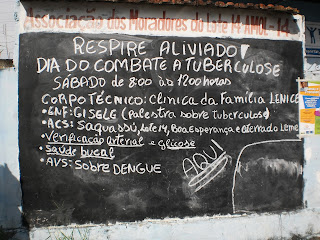 Associação dos Moradores do Lote 14 AMOL-14
RESPIRE ALIVIADO!
DIA DO COMBATE A TUBERCULOSE
SÁBADO de 8:00 às 1200 horas
CORPO TÉCNICO: Clínica da Família LENICE
•ENF: GISELE (Palestra sobre Tuberculose)
•ACS: Saquassú, Lote 14, Boa Esperança e Aterrado Leme
•Verificação arterial e Glicose
•Saúde bucal
AQUI
•AVS: Sobre DENGUE